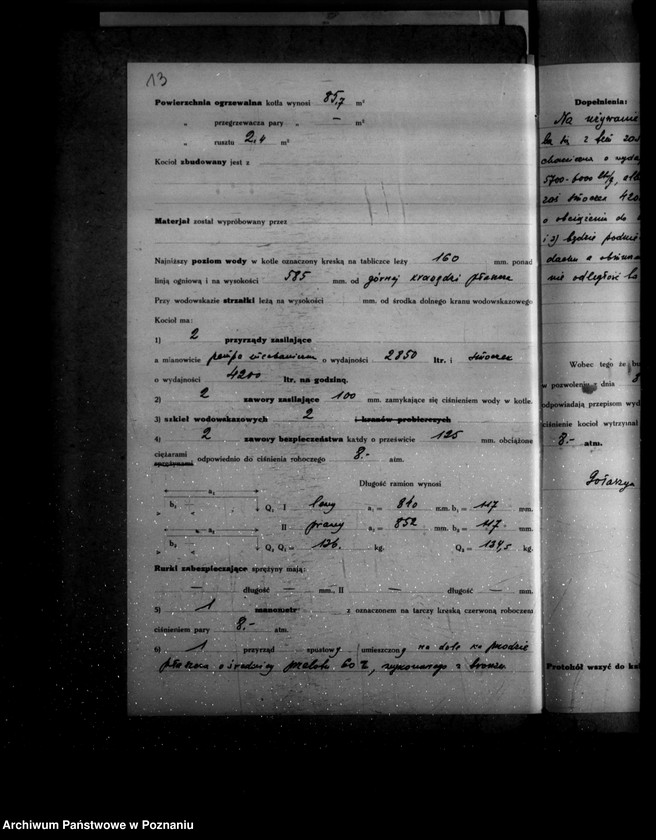 13
Powierzchnia ogrzewalna kotła wynosi 85,7 m²
„ przegrzewacza pary „ — m²
„ rusztu 2,4 m²
Kocioł zbudowany jest z
Materjał został wypróbowany przez
Najniższy poziom wody w kotle oznaczony kreską na tabliczce leży 160 mm. ponad
linją ogniową i na wysokości 585 mm. od górnej krawędzi płaszcza
Przy wodowskazie strzałki leżą na wysokości mm. od środka dolnego kranu wodowskazowego
Kocioł ma:
1) 2 przyrządy zasilające
a mianowicie pompa o wydajności 2850 ltr. i smoczek
o wydajności 4200 ltr. na godzinę.
2) 2 zawory zasilające 100 mm. zamykające się ciśnieniem wody w kotle.
3) szkieł wodowskazowych 2 i kranów probierczych
4) 2 zawory bezpieczeństwa każdy o prześwicie 125 mm. obciążone
ciężarami
sprężynami odpowiednio do ciśnienia roboczego 8.- atm.
Długość ramion wynosi
a₁
b₁ Q₁ I lewy a₁ = 810 mm. b₁ = 117 mm.
a₂ II prawy a₂ = 852 mm. b₂ = 117 mm.
b₂ Q₂ Q₁ = 136. kg. Q₂ = 134,5 kg.
Rurki zabezpieczające sprężyny mają:
— długość — mm., II — długość — mm.
5) 1 manometr z oznaczonem na tarczy kreską czerwoną roboczem
ciśnieniem pary 8.- atm.
6) 1 przyrząd spustowy umieszczony na dole na przodzie
płaszcza o średnicy przelotu 60 wykonanego z bronzu
Dopełnienia:
Na używanie
5700-6000
zaś smoczek 420
o obciążeniu do
i 2) będzie
nie odległość
Wobec tego że
w pozwoleniu z dnia 8
odpowiadają przepisom wyd
ciśnienie kocioł wytrzymał
8.- atm.
Protokół wszyć do
Archiwum Państwowe w Poznaniu